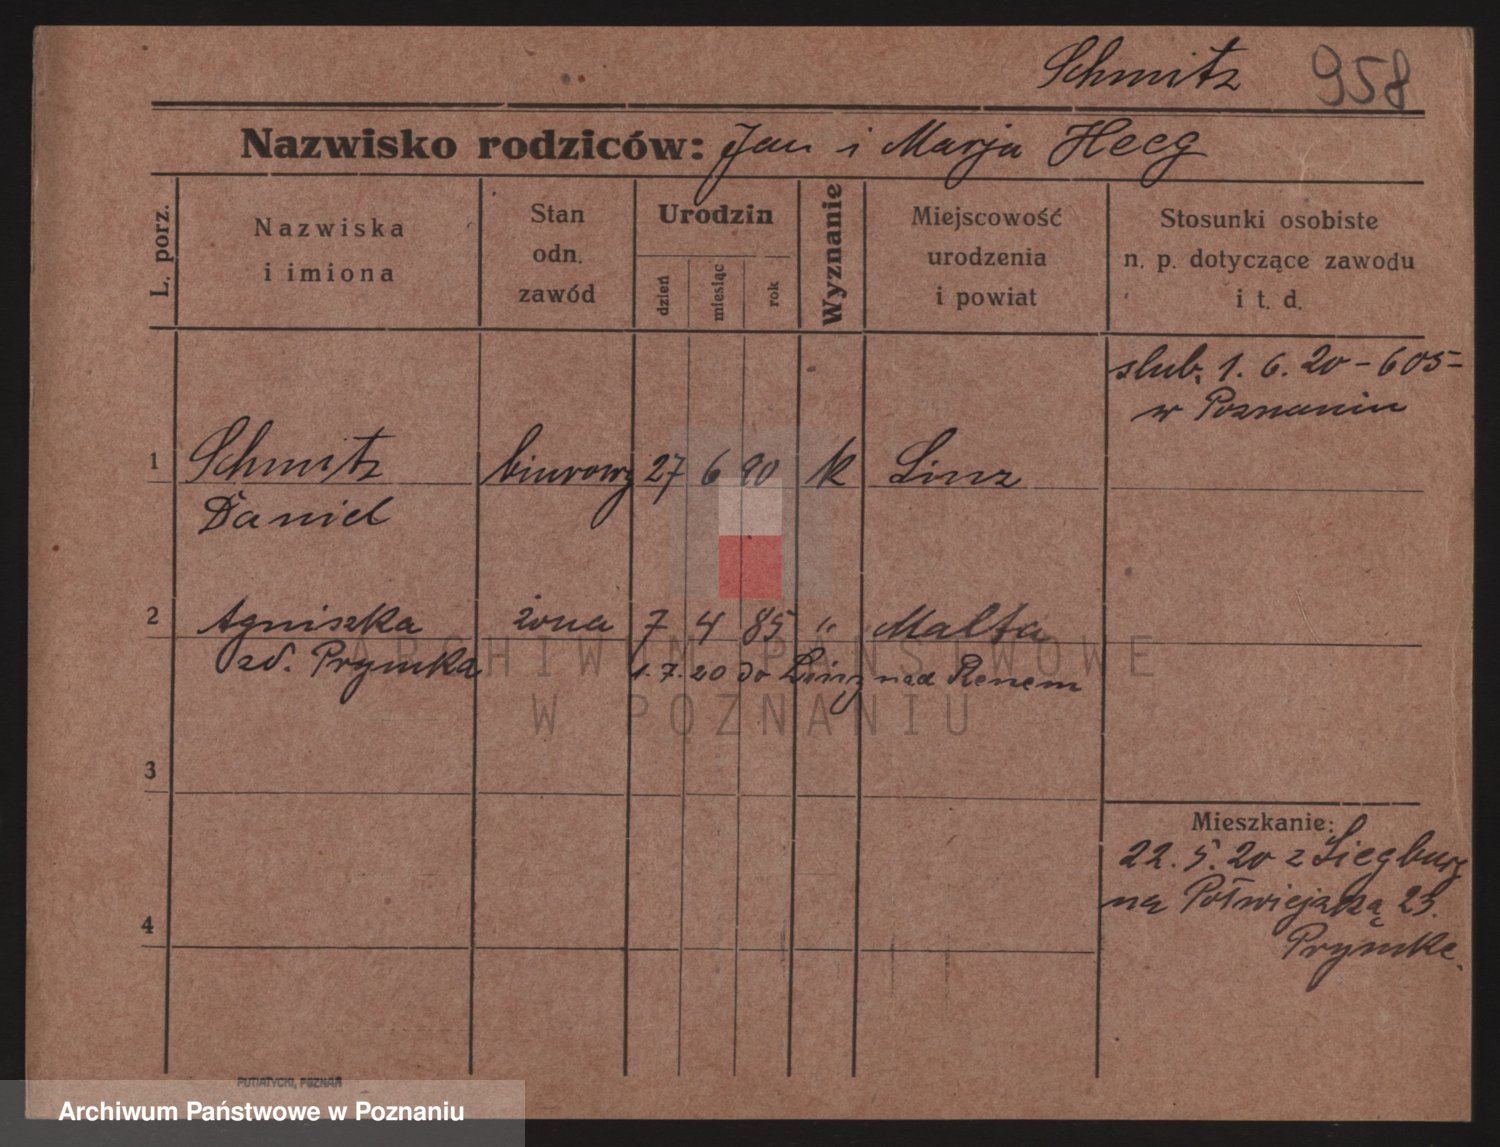 Schmitz 958
Nazwisko rodziców: Jan i Marja Heeg
L. porz.
Nazwiska
i imiona
Stan
odn.
zawód
Urodzin
dzień
miesiąc
rok
Wyznanie
Miejscowość
urodzenia
i powiat
Stosunki osobiste
n. p. dotyczące zawodu
i t. d.
slub. 1. 6. 20 - 605 =
w Poznaniu
1 Schmitz biurowy 27 6 90 k Linz
Daniel
2 Agniszka żona 7 4 85 " Malta
zd. Prymka 1. 7. 20 do Linz nad Renem
3
Mieszkanie:
22. 5. 20 z Siegburg
na Półwiejską 23.
Prymke.
4
PUTIATYCKI, POZNAŃ
ARCHIWUM PAŃSTWOWE
W POZNANIU
Archiwum Państwowe w Poznaniu